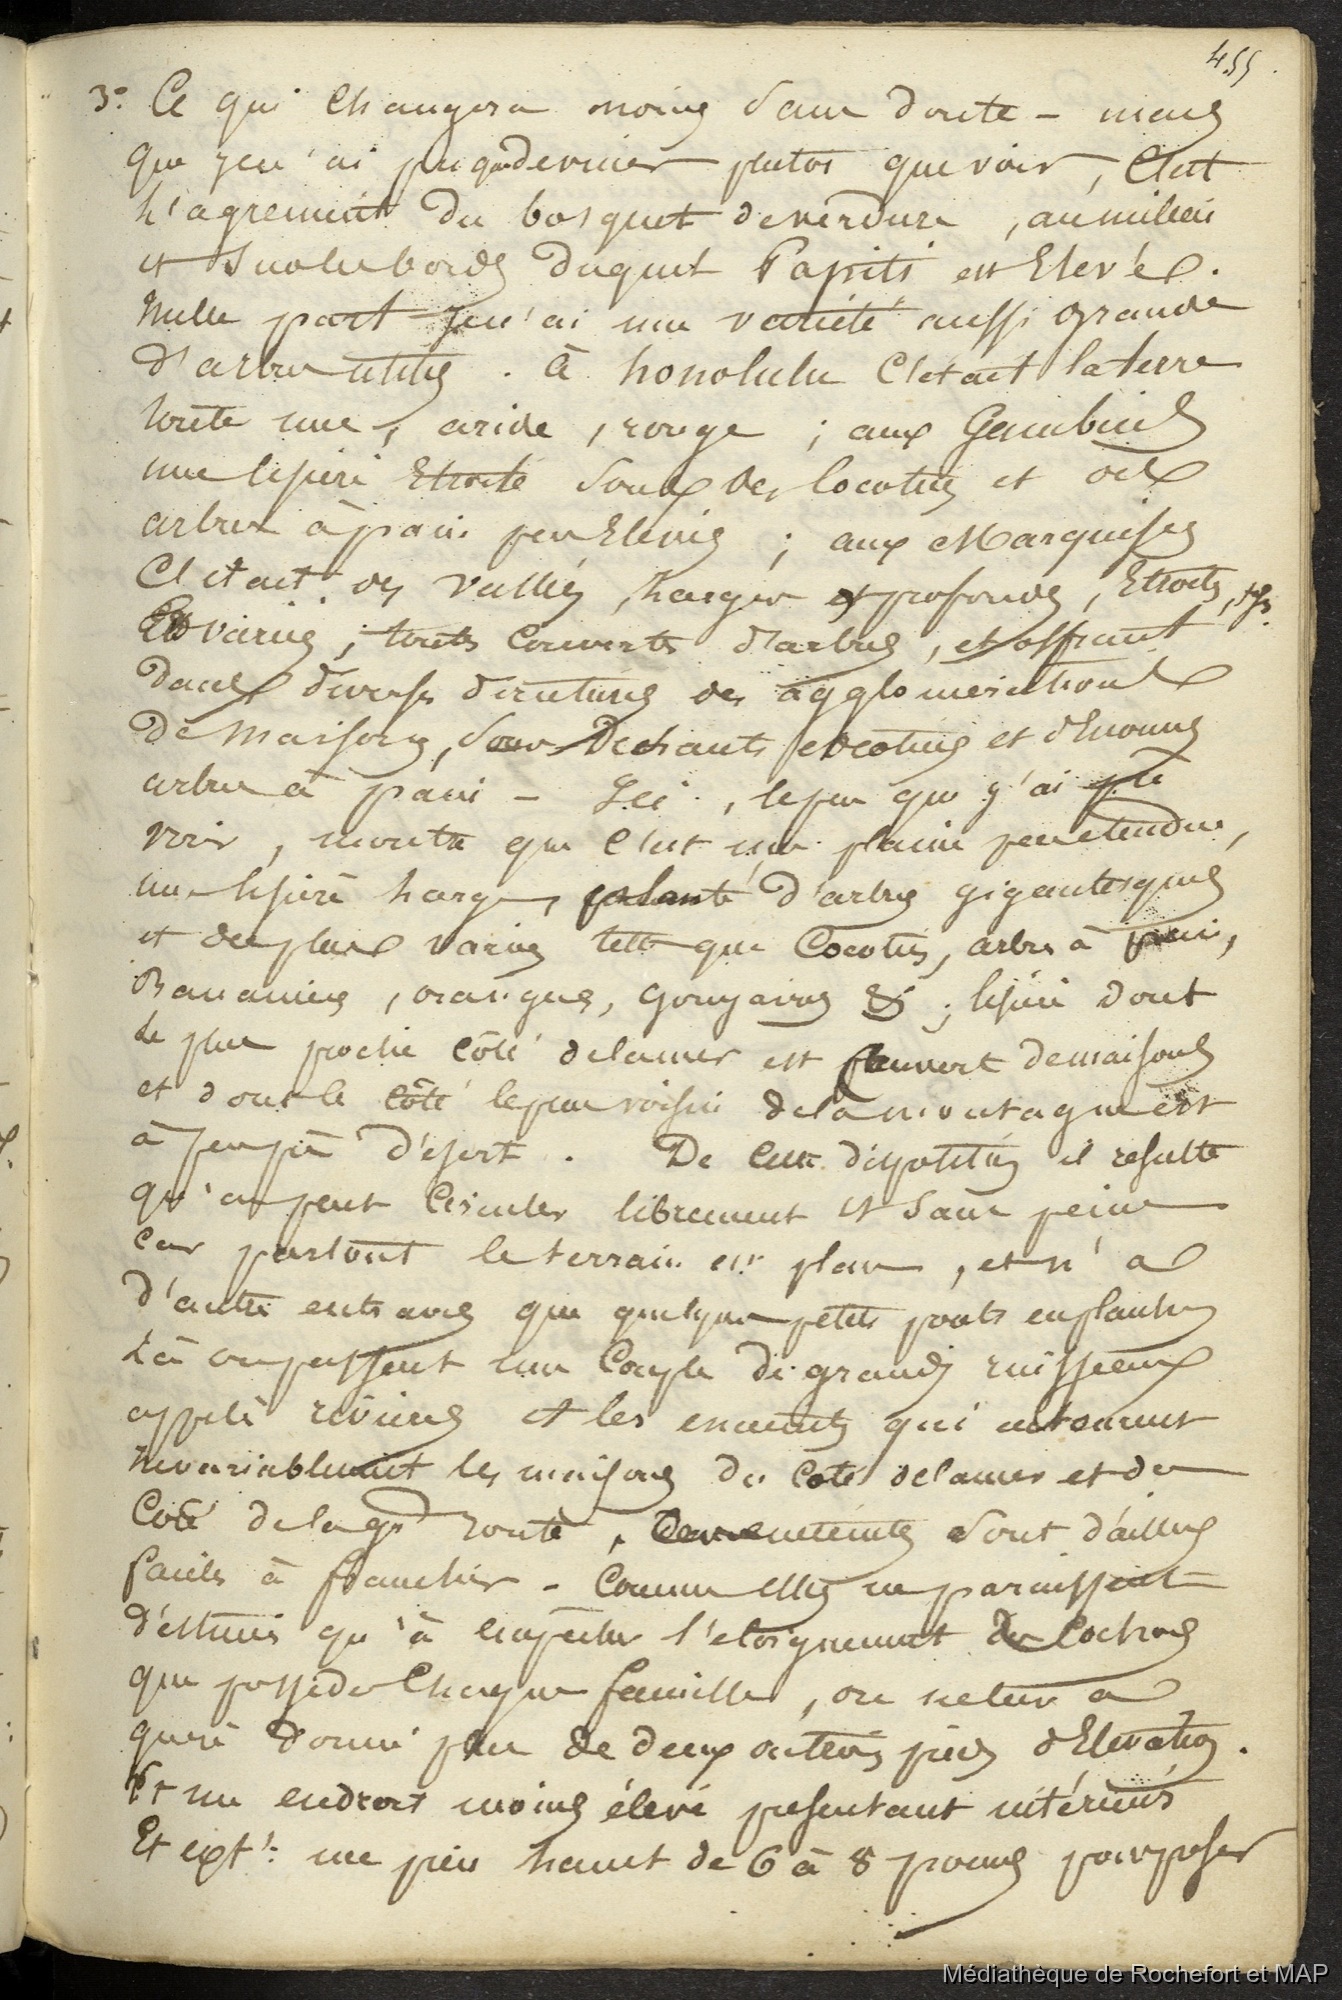 455.
3°. Ce qui changera moins sans doute - mais
que je n'ai pu que deviner plutot que voir, c'est
l'agrement du bosquet de verdure, au milieu
et sur les bords duquel Papiti est Elevé.
Nulle part je n'ai vu variété aussi grande
d'arbres utiles. à honolulu c'etait la terre
toute nue, aride, rouge ; aux Gambiers
une lisière Etroite sous des cocotiers et des
arbres à pain peu Elevés ; aux Marquises
C'etait des vallées, larges et profondes, Etroites,
Et variées, toutes couvertes d'arbres, et offrant
dans diverses directions des agglomerations
de maisons, sous De hauts cocotiers et d'Enormes
arbres à pain - Ici, le peu que j'ai pu
voir, montre que c'est une plaine peu etendue,
une lisière large, plantée d'arbres gigantesques
et des plus variés tels que Cocotiers, arbres à pain,
Bananiers, oranges, gouyaves &c ; lisière dont
le plus proche côté de la mer est couvert de maisons
et dont le côté le plus voisin de la montagne est
à peu près désert. De cette disposition il resulte
qu'on peut circuler librement et sans peine
car partout le terrain est plan, et n'a
d'autres entraves que quelques petits ponts en planches
là où passent une couple de grands ruisseaux
appelés rivières et les enceintes qui entourent
Invariablement les maisons du coté de la mer et du
Coté de la gde route, Ces enceintes sont d'ailleurs
faciles à franchir - comme elles ne paraissent
destinées qu'à empêcher l'eloignement des Cochons
que possède Chaque famille, on ne leur a
guère donné plus de deux ou trois pieds d'Elevation.
Et un endroit moins élevé presentant intérieurs
Et extr. une pierre haute de 6 à 8 pouces pour poser
Médiathèque de Rochefort et MAP